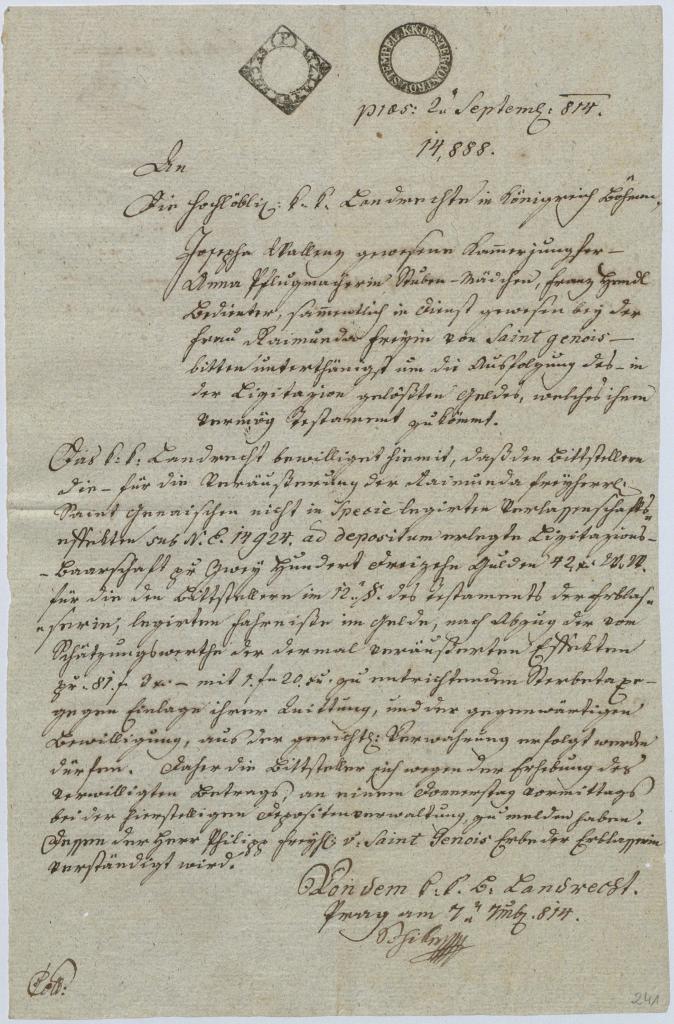 K.K. OESTER. CONTROL STEMPEL
præs: 2ten Septemb: 814.
14,888.
An
Die hochlöbli: k. k. Landrechte in Königreich Böhmen,
Josepha Wallenz gewesene Kammerjungfer –
Anna Pflugmacherin Stuben-Mädchen, Franz
Bedienter, sämmtlich in Dienst gewesen bey der
Frau Raimunda Freyin von Saint genois –
bitten unterthänigst um die Ausfolgung des – in
der Lizitazion gelößten Geldes, welches ihnen
vermög Testament zukömmt.
Das k: k: Landrecht bewilliget hiemit, daß den Bittstellern
die – für die Veräußerung der Raimunda Freyherrl:
Saint Genoischen nicht in Specie legirten Verlassenschafts-
effekten sub N.E. 14924. ad depositum erlegte Lizitazions-
-Baarschaft pr Zwey Hundert Dreizehn Gulden 42 xr W.W.
für die den Bittstellern im 12ten §. des Testaments der Erblas-
-serin, legirten Fahrnisse im Gelde, nach Abzug der vom
Schätzungswerthe der dermal veräußerten Effekten
pr. 81 f 3 xr – mit 1. f 20 xr. zu entrichtenden Sterbetaxe –
gegen Einlage ihrer Quittung, und der gegenwärtigen
Bewilligung, aus der gerichtl: Verwahrung erfolgt werden
dürfen. Daher die Bittsteller sich wegen der Erhebung des
verwilligten Betrags, an einem Donnerstag Vormittags
bei der hierstelligen Depositenverwaltung, zu melden haben.
Dessen der Herr Philipp Freyh: v: Saint Genois Erbe der Erblasserin
verständigt wird.
Von dem k. k. b: Landrecht.
Prag am 7ten 7mb. 814.
Coll:
241